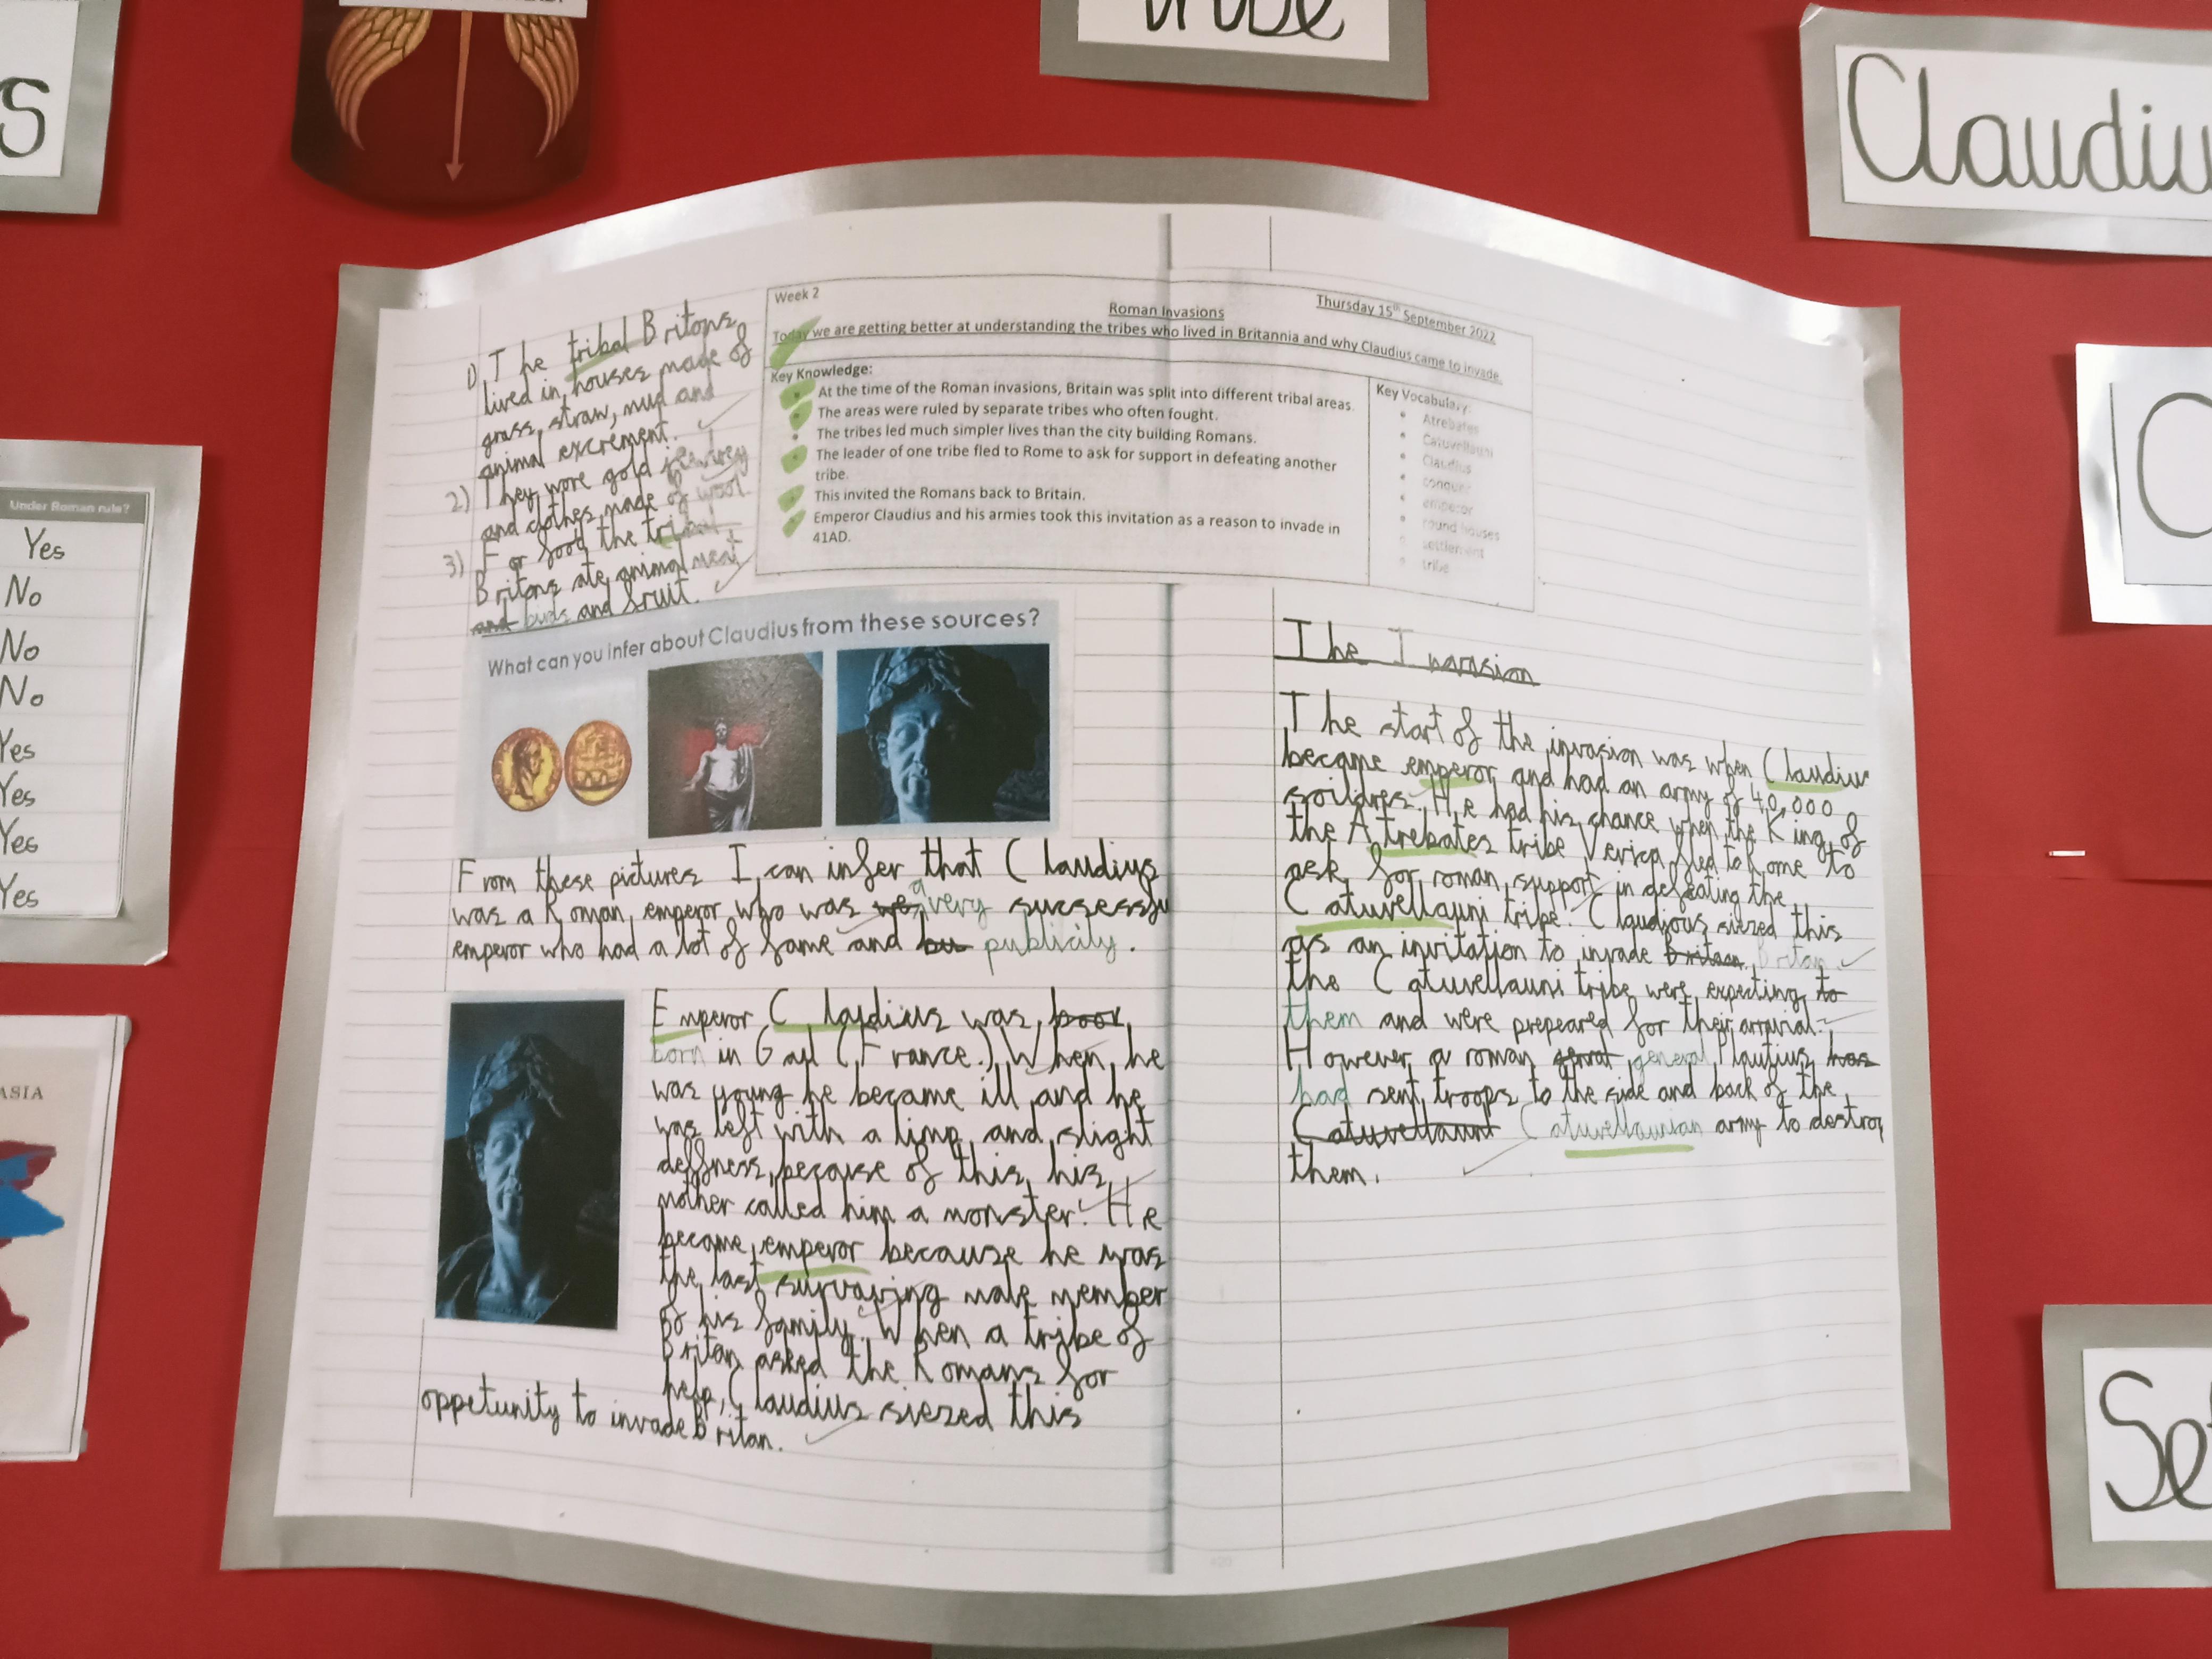 s
tribe
Claudiu
Under Roman rule?
Yes
No
No
No
Yes
Yes
Yes
Yes
ASIA
C
Se
Week 2
Thursday 15th September 2022
Roman Invasions
Today we are getting better at understanding the tribes who lived in Britannia and why Claudius came to invade.
Key Knowledge:
At the time of the Roman invasions, Britain was split into different tribal areas.
The areas were ruled by separate tribes who often fought.
The tribes led much simpler lives than the city building Romans.
The leader of one tribe fled to Rome to ask for support in defeating another
tribe.
This invited the Romans back to Britain.
Emperor Claudius and his armies took this invitation as a reason to invade in
41AD.
Key Vocabulary:
Atrebates
Catuvellauni
Claudius
conquer
emperor
round houses
settlement
tribe
1) The tribal Britons
lived in houses made of
grass, straw, mud and
animal excrement.
2) They wore gold jewelry
and clothes made of wool
3) For food the tribal
Britons ate animal meat
and buds and fruit.
What can you infer about Claudius from these sources?
From these pictures I can infer that Claudius
was a Roman emperor who was a very successfu
emperor who had a lot of fame and publicity.
Emperor Claudius was boor
born in Gaul (France.) When he
was young he became ill and he
was left with a limp and slight
deffness, because of this, his
mother called him a monster! He
became emperor because he was
the last survaving male member
of his family. When a tribe of
Britan asked the Romans for
help, Claudius siezed this
oppetunity to invade Britan.
The Invasion
The start of the invasion was when Claudius
became emperor and had an army of 40,000
soildres. He had his chance when the King of
the Atrebates tribe Verica fled to Rome to
ask for roman support in defeating the
Catuvellauni tribe. Claudious siezed this
as an invitation to invade Britaan Britan.
the Catuvellauni tribe were expecting to
them and were prepeared for their arrival.
However a roman general Plautius has
had sent troops to the side and back of the
Catuvellauni Catuvellaunian army to destroy
them.